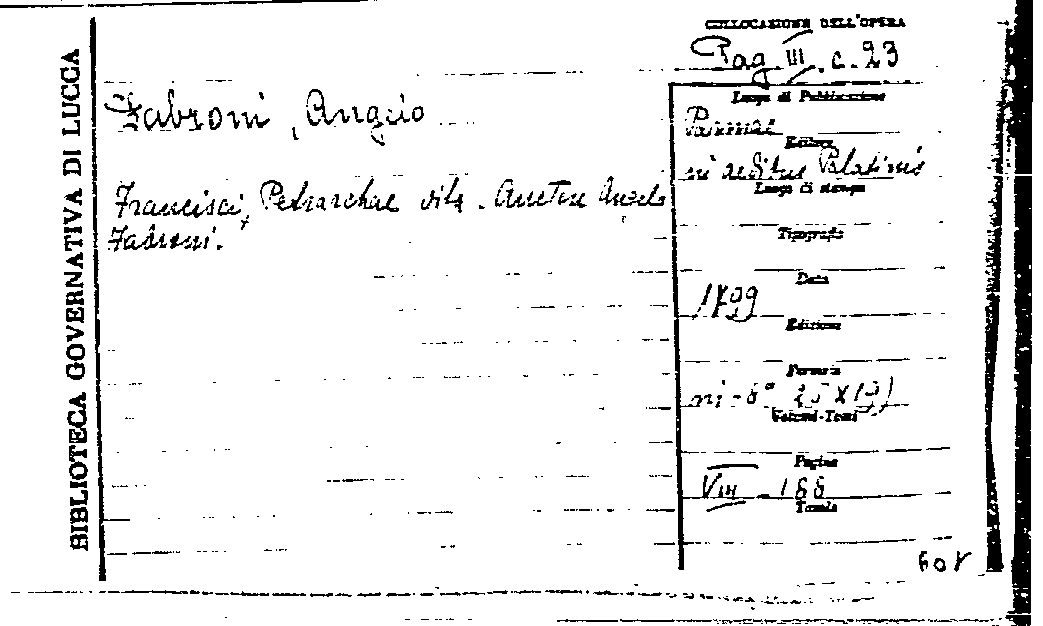 BIBLIOTECA GOVERNATIVA DI LUCCA
COLLOCAZIONE DELL'OPERA
Pag III. c. 23
Fabroni, Angelo
Francisci Petrarchae vita. Auctore Angelo
Fabroni.
Luogo di Pubblicazione
Parmae
Editore
in aedibus Palatinis
Luogo di stampa
Tipografia
Data
1799
Edizione
Formato
in-8° 25X19
Volumi-Tomi
Pagine
VIII - 188
Tavole